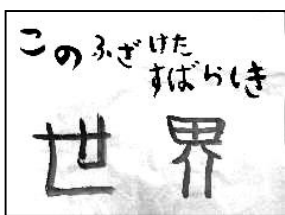 このふざけた
すばらしき
世界